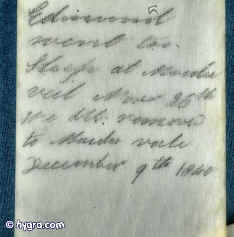 Edmund
went to
Sleep at Maida
veil Nov 26th
we all removed
to Maida vale
December 9th 1840
© hygra.com